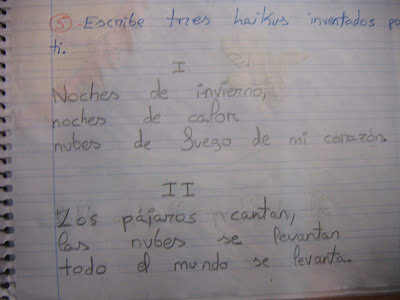 ⑤ Escribe tres haikus inventados po
ti.
I
Noches de invierno,
noches de calor
nubes de fuego de mi corazón.
II
Los pájaros cantan,
las nubes se levantan
todo el mundo se levanta.